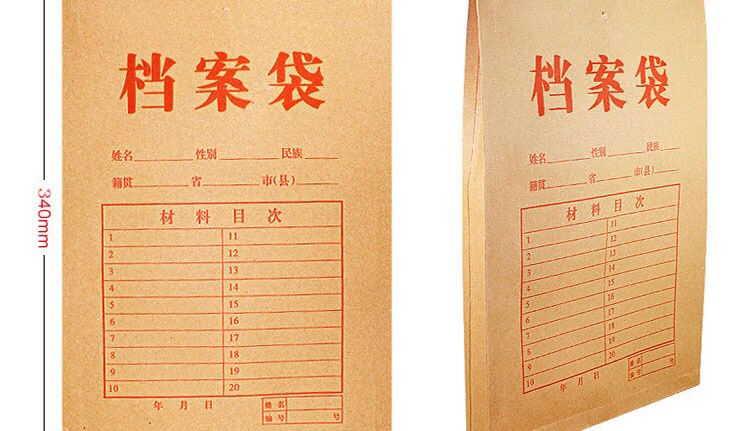 档案袋
姓名 性别 民族
籍贯 省 市(县)
材料目次
1 11
2 12
3 13
4 14
5 15
6 16
7 17
8 18
9 19
10 20
年 月 日
姓名
编号 号
340mm
档案袋
姓名 性别 民族
籍贯 省 市(县)
材料目次
1 11
2 12
3 13
4 14
5 15
6 16
7 17
8 18
9 19
10 20
年 月 日
姓名
编号 号